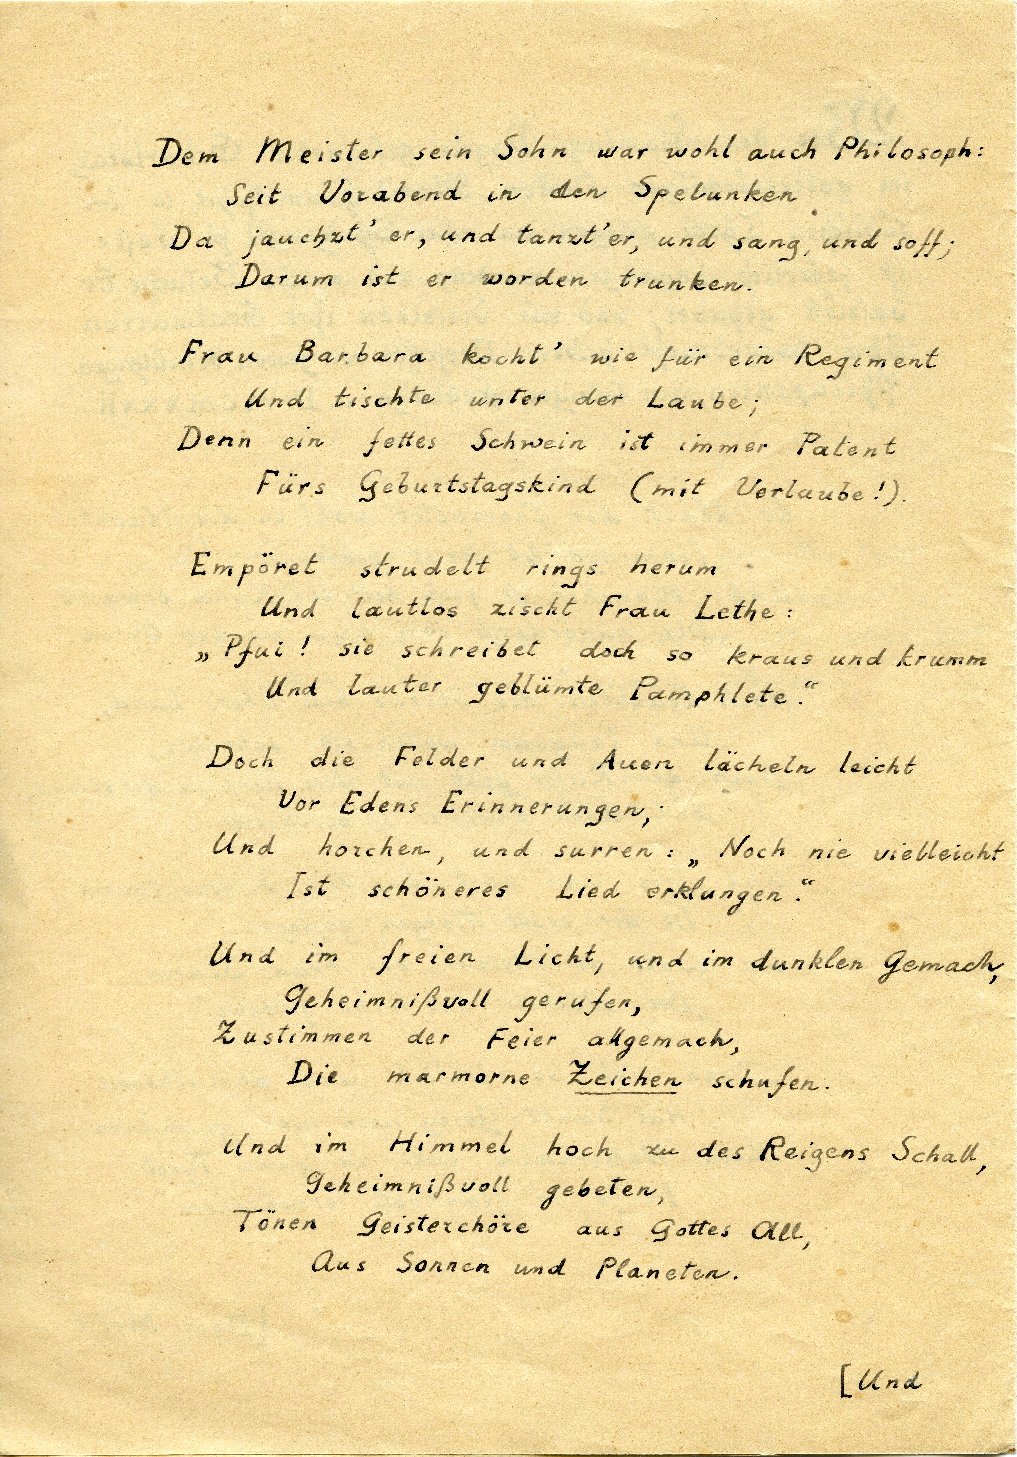 Dem Meister sein Sohn war wohl auch Philosoph:
Seit Vorabend in den Spelunken
Da jauchzt' er, und tanzt' er, und sang, und soff;
Darum ist er worden trunken.
Frau Barbara kocht' wie für ein Regiment
Und tischte unter der Laube;
Denn ein fettes Schwein ist immer Patent
Fürs Geburtstagskind (mit Verlaube!).
Empöret strudelt rings herum
Und lautlos zischt Frau Lethe:
„Pfui! sie schreibet doch so kraus und krumm
Und lauter geblümte Pamphlete.“
Doch die Felder und Auen lächeln leicht
Vor Edens Erinnerungen,
Und horchen, und surren: „Noch nie vielleicht
Ist schöneres Lied erklungen.“
Und im freien Licht, und im dunklen Gemach,
Geheimnißvoll gerufen,
Zustimmen der Feier allgemach,
Die marmorne Zeichen schufen.
Und im Himmel hoch zu des Reigens Schall,
Geheimnißvoll gebeten,
Tönen Geisterchöre aus Gottes All,
Aus Sonnen und Planeten.
[Und